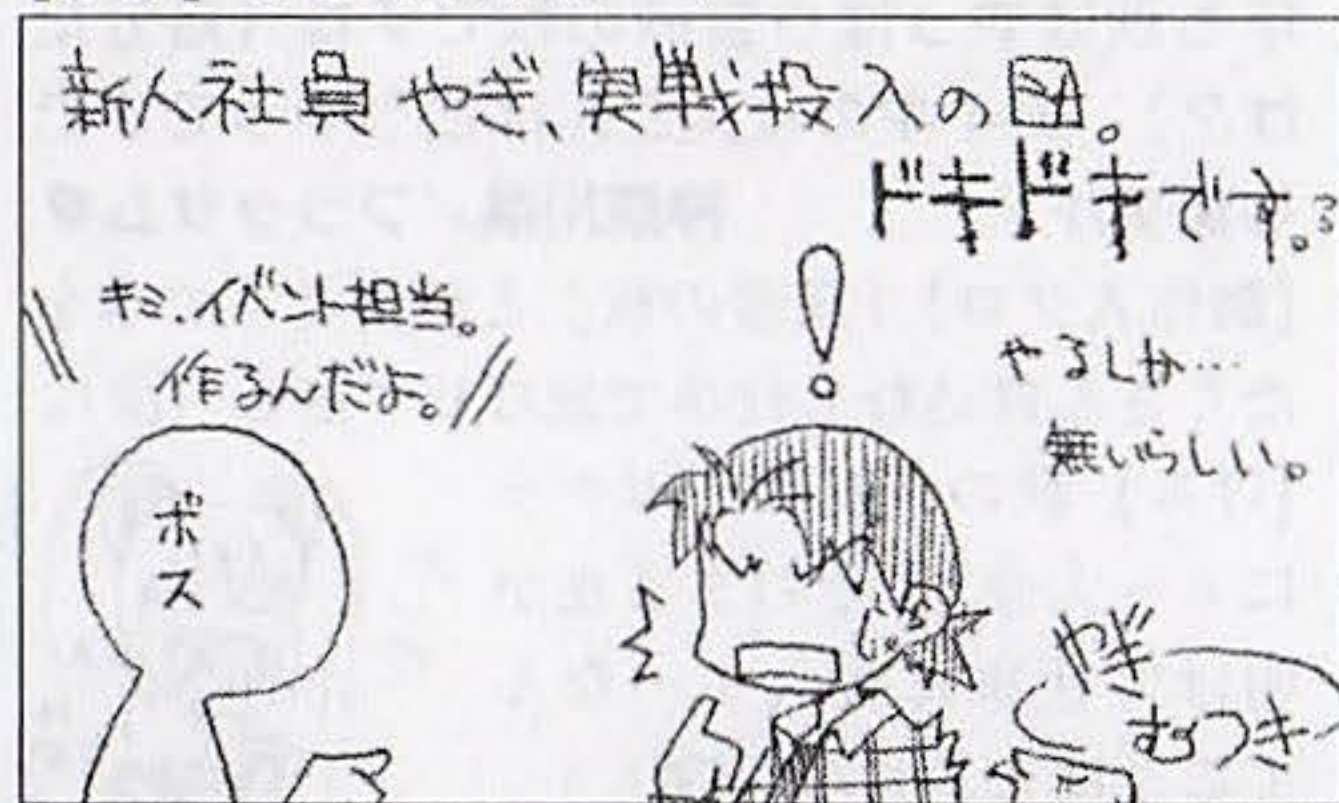 新人社員 やぎ、実戦投入の図。
ドキドキです。
キミ、イベント担当。
作るんだよ。
!
やるしか…
無いらしい。
ボス
やぎ
むつき